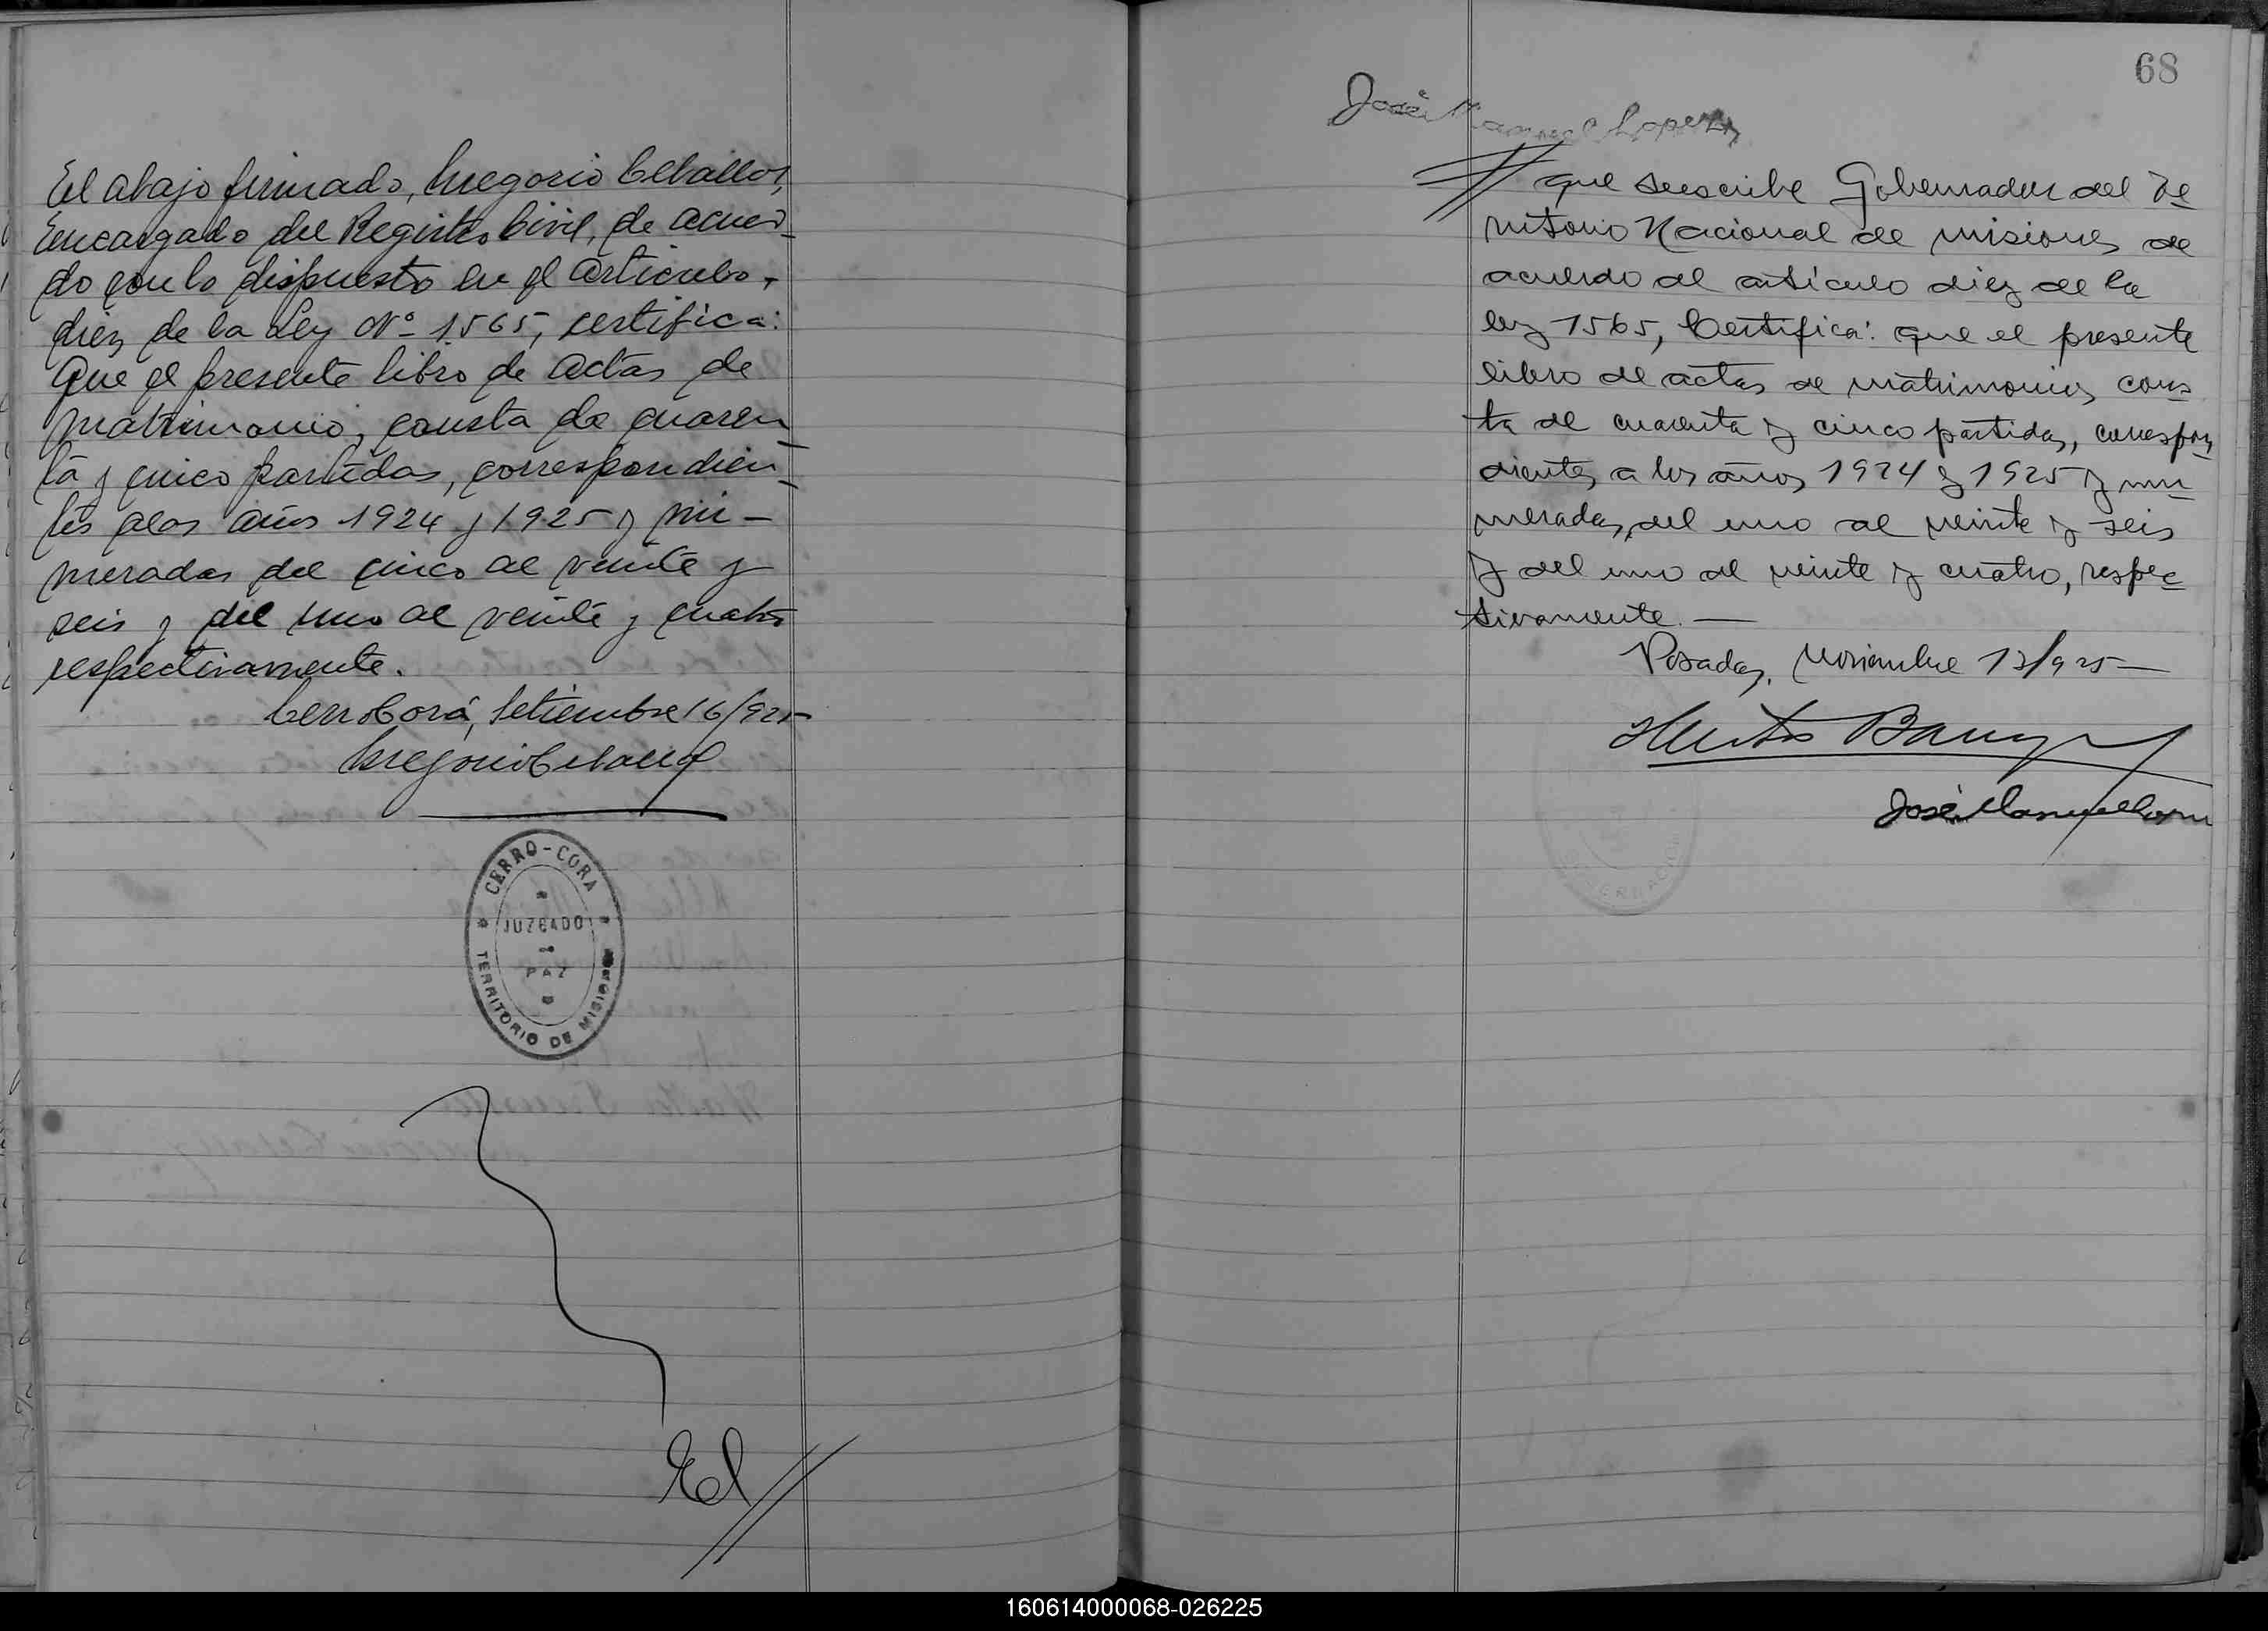 El abajo firmado, Gregorio Ceballos,
Encargado del Registro Civil, de acuer-
do con lo dispuesto en el artículo
diez de la Ley Nº 1565, certifica:
Que el presente libro de actas de
matrimonio, consta de cuaren-
ta y cinco partidas, correspondien-
tes a los años 1924 y 1925 y nu-
meradas del cinco al veinte y
seis y del uno al veinte y cuatro
respectivamente.
Cerro Corá, Setiembre 16/925
Gregorio Ceballos
CERRO-CORA
JUZGADO
PAZ
TERRITORIO DE MISIONES
El //
68
José Manuel Lopez
// que suscribe Gobernador del Te
rritorio Nacional de Misiones de
acuerdo al artículo diez de la
ley 1565, Certifica: que el presente
libro de actas de matrimonios cons-
ta de cuarenta y cinco partidas, correspon
dientes a los años 1924 y 1925 y nu-
meradas, del uno al veinte y seis
y del uno al veinte y cuatro, respec-
tivamente. —
Posadas, Noviembre 13/925—
José Manuel
GOBERNACION
160614000068-026225